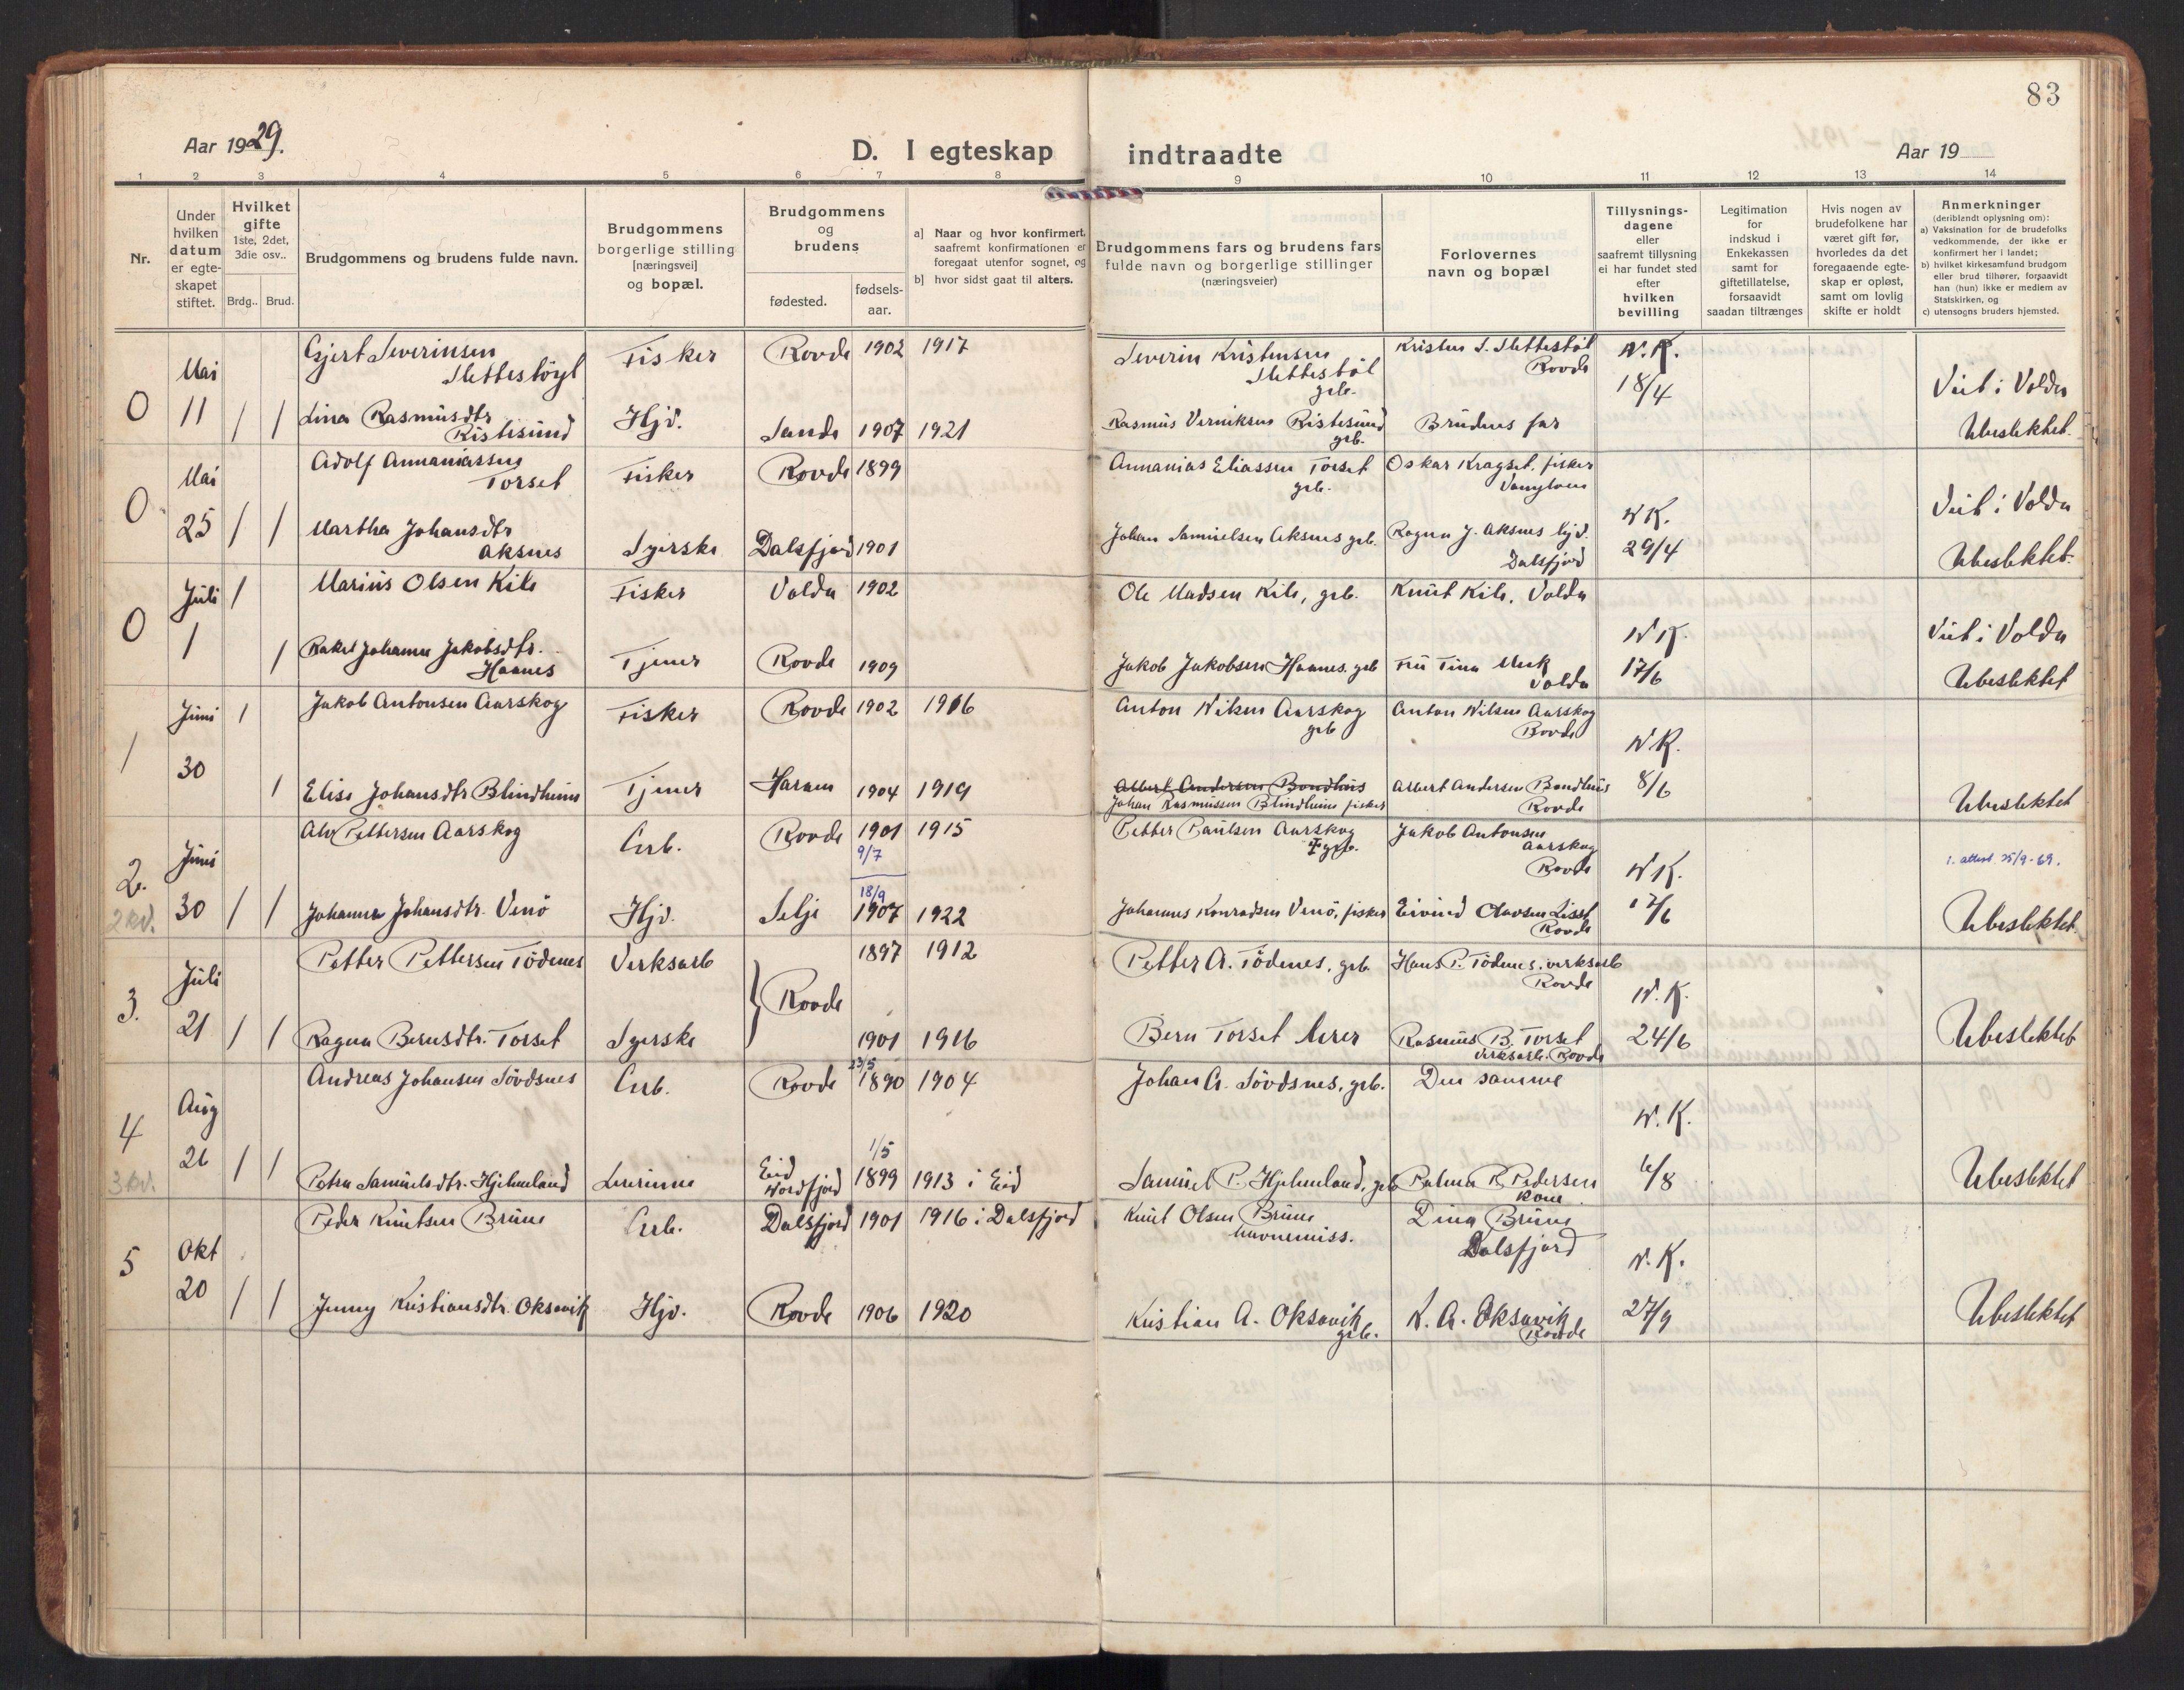 83
Aar 1929.
D. I egteskap
indtraadte
Aar 19
1 2 3 4 5 6 7 8 9 10 11 12 13 14
Nr.
Under
hvilken
datum
er egte-
skapet
stiftet.
Hvilket
gifte
1ste, 2det,
3die osv..
Brdg.. Brud.
Brudgommens og brudens fulde navn.
Brudgommens
borgerlige stilling
[næringsvei]
og bopæl.
Brudgommens
og
brudens
fødested.
fødsels-
aar.
a] Naar og hvor konfirmert,
saafremt konfirmationen er
foregaat utenfor sognet, og
b] hvor sidst gaat til alters.
Brudgommens fars og brudens fars
fulde navn og borgerlige stillinger
(næringsveier)
Forlovernes
navn og bopæl
Tillysnings-
dagene
eller
saafremt tillysning
ei har fundet sted
efter
hvilken
bevilling
Legitimation
for
indskud i
Enkekassen
samt for
giftetillatelse,
forsaavidt
saadan tiltrænges
Hvis nogen av
brudefolkene har
været gift før,
hvorledes da det
foregaaende egte-
skap er opløst,
samt om lovlig
skifte er holdt
Anmerkninger
(deriblandt oplysning om):
a) Vaksination for de brudefolks
vedkommende, der ikke er
konfirmert her i landet;
b) hvilket kirkesamfund brudgom
eller brud tilhører, forsaavidt
han (hun) ikke er medlem av
Statskirken, og
c) utensogns bruders hjemsted.
0 Mai 11 1 1
Gjert Severinsen
Slettestøyl
Fisker Rovde 1902 1917
Severin Kristensen
Slettestøl
grb.
Kristen S. Slettestøl
Rovde
N.K.
18/4
Viet i Volda
Lina Rasmusdtr
Ristesund
Hjd. Sande 1907 1921
Rasmus Verniksen Ristesund
grb.
Brudens far
Ubeslektet.
0 Mai 25 1 1
Adolf Annaniassen
Torset
Fisker Rovde 1899
Annanias Eliassen Torset
grb.
Oskar Kragset, fisker
Vanylven
N K.
29/4
Viet i Volda
Martha Johansdtr
Aksnes
Syerske Dalsfjord 1901
Johan Samuelsen Aksnes grb. Ragna J. Aksnes hjd.
Dalsfjord
Ubeslektet.
0 Juli 1 1 1
Marius Olsen Kile Fisker Volda 1902
Ole Madsen Kile, grb. Knut Kile, Volda
N K.
17/6
Viet i Volda
Rakel Johanne Jakobsdtr.
Haanes
Tjener Rovde 1909
Jakob Jakobsen Haanes, grb Fru Tina Mork
Volda
Ubeslektet
1 Juni 30 1 1
Jakob Antonsen Aarskog Fisker Rovde 1902 1916
Anton Nilsen Aarskog
grb
Anton Nilsen Aarskog
Rovde
N K.
8/6
Elise Johansdtr Blindheim Tjener Haram 1904 1919
Albert Andersen Bondhus
Johan Rasmussen Blindheim fisker
Albert Andersen Bondhus
Rovde
Ubeslektet
2. 2 kv. Juni 30 1 1
Petersen Aarskog Arb. Rovde 1901 1915
9/7
Petter Paulsen Aarskog
grb.
Jakob Antonsen
Aarskog
Rovde
N K.
17/6
1. attest 25/9-69.
Johanna Johansdtr. Venö Hjd. Selje 18/9 1907 1922
Johannes Konradsen Venö, fisker Eivind Olavsen Liset
Rovde
Ubeslektet.
3. Juli 21 1 1
Petter Pettersen Tödenes Verksarb Rovde 1897 1912
Petter A. Tödenes, grb. Hans P. Tödenes, verksarb
Rovde
N. K.
24/6
Ragna Bernsdtr. Torset Syerske 1901 1916
Bern Torset lærer Rasmus B. Torset
verksarb. Rovde
Ubeslektet
4 3 kv. Aug 26 1 1
Andreas Johansen Sövdsnes Arb. Rovde 23/5 1890 1904
Johan A. Sövdsnes, grb. Den samme
N. K.
4/8
Petra Samuelsdtr. Hjelmeland Lærerinne Eid
Nordfjord 1/5 1899 1913 i Eid
Samuel P. Hjelmeland, grb Palma R Pedersen
kone
Ubeslektet
5 Okt 20 1 1
Peder Knutsen Brune Arb. Dalsfjord 1901 1916 i Dalsfjord
Knut Olsen Brune
havnemiss.
Dina Brune
Dalsfjord
N. K.
27/9
Jenny Kristiansdtr. Oksavik Hjd. Rovde 1906 1920
Kristian A. Oksavik
grb.
K. A. Oksavik
Rovde
Ubeslektet